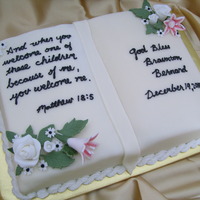 And when you
welcome one of
these children
because of me,
you welcome me.
Matthew 18:5
God Bless
Bernard
December 19,